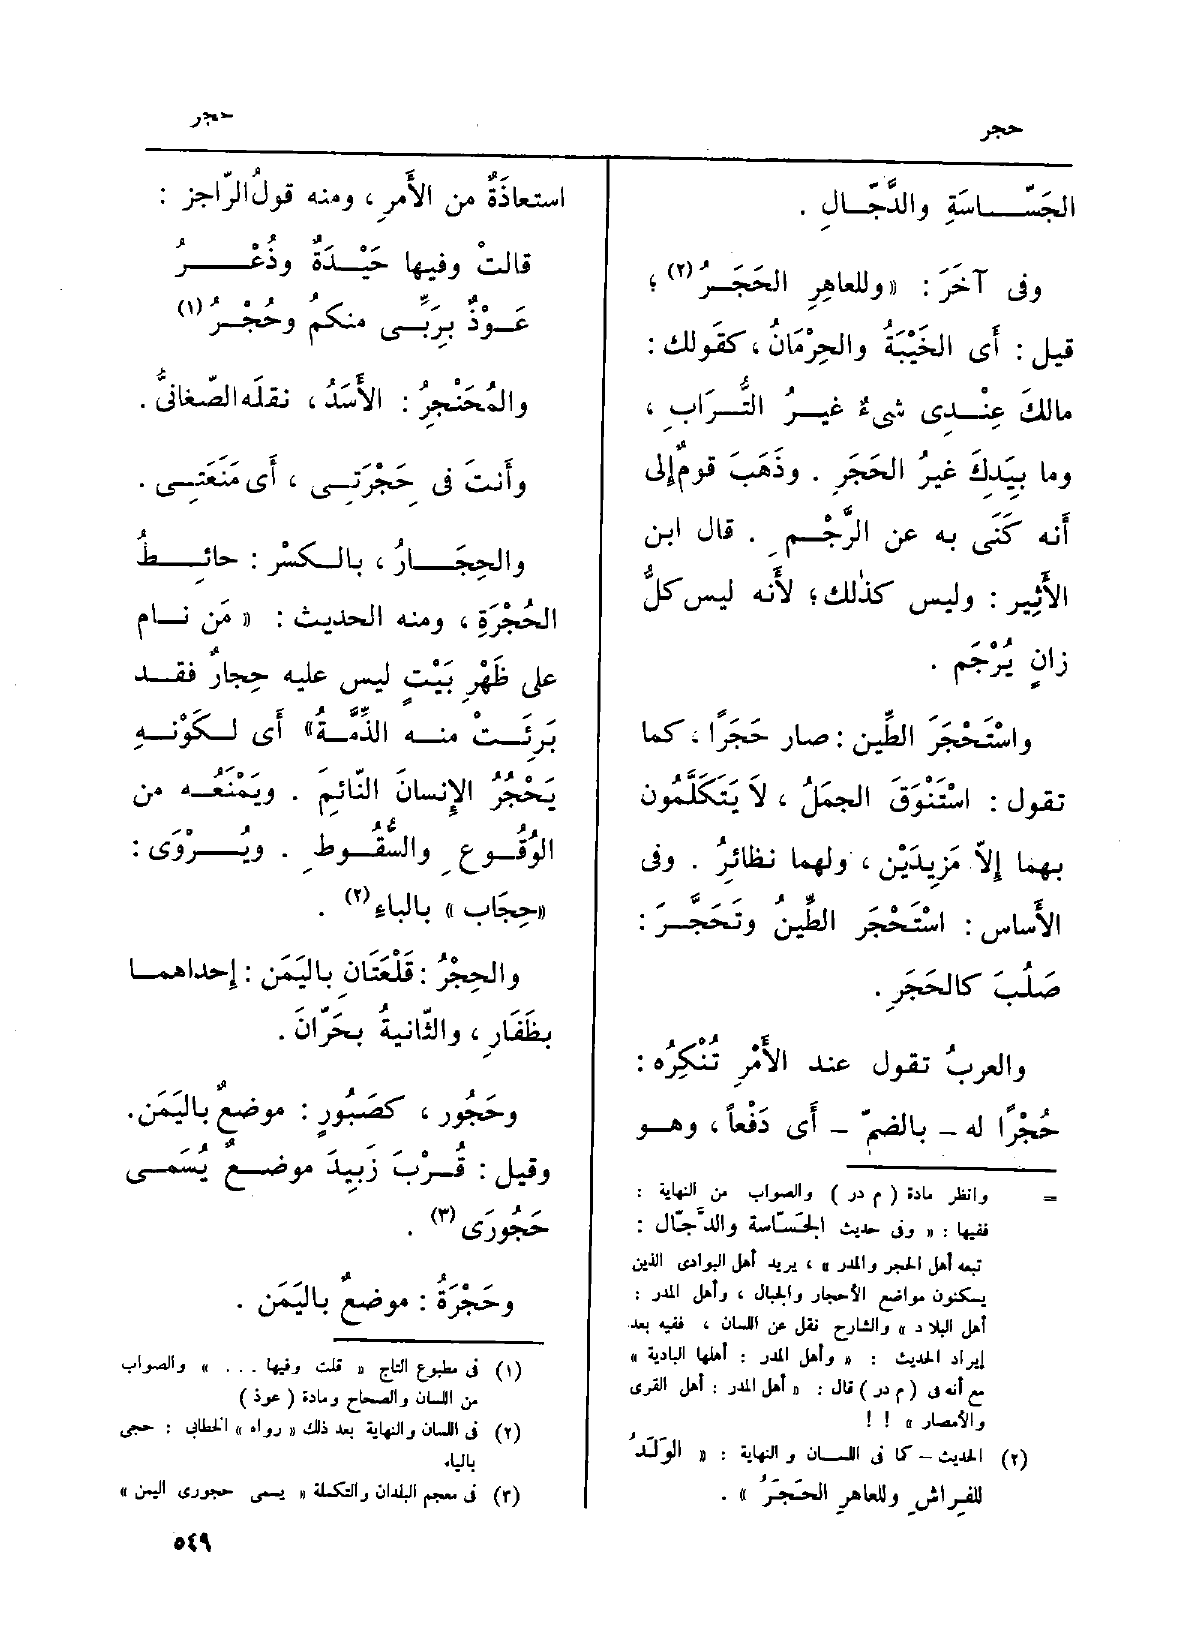 حجر
حجر
الجَسّاسَةِ والدَّجّالِ .
وفى آخَرَ : « وللعاهِرِ الحَجَرُ (٢) ؛
قيل : أَى الخَيْبَةُ والحِرْمَانُ ، كقَولك :
مالكَ عِنْدِى شىءٌ غيرُ التُّرَابِ ،
وما بِيَدِكَ غيرُ الحَجَرِ . وذَهَبَ قومٌ إلى
أَنه كَنَى به عن الرَّجْمِ . قال ابن
الأَثِير : وليس كذٰلك ؛ لأَنه ليس كلُّ
زانٍ يُرْجَم .
واسْتَحْجَرَ الطِّين : صار حَجَرًا ، كما
تقول : اسْتَنْوَقَ الجملُ ، لاَ يَتَكَلَّمُون
بهما إلاّ مَزِيدَيْن ، ولهما نظائرُ . وفى
الأَساس : اسْتَحْجَر الطِّينُ وتَحَجَّرَ :
صَلُبَ كالحَجَرِ .
والعربُ تقول عند الأَمْرِ تُنْكِرُه :
حُجْرًا له – بالضمّ – أَى دَفْعاً ، وهو
= وانظر مادة ( م در ) والصواب من النهاية :
ففيها : « وفى حديث الجَسّاسة والدجّال :
تبعه أهل الحجر والمدر » ، يريد أهل البوادى الذين
يسكنون مواضع الأحجار والجبال ، وأهل المدر :
أهل البلاد » والشارح نقل عن اللسان ، ففيه بعد
إيراد الحديث : « وأهل المدر : أهلها البادية »
مع أنه فى ( م در ) قال : « أهل المدر : أهل القرى
والأمصار » ! !
(٢) الحديث – كما فى اللسان و النهاية : « الوَلَدُ
للفِراشِ وللعاهرِ الحَجَرُ » .
استعاذَةٌ من الأَمرِ ، ومنه قولُ الرّاجز :
قالتْ وفيها حَيْدَةٌ وذُعْرُ
عَوْذٌ بِرَبِّى منكمُ وحُجْرُ (١)
والمُحَنْجِرُ : الأَسَدُ ، نقلَه الصّغانىُّ .
وأَنتَ فى حِجْرَتِى ، أَى مَنَعَتِى .
والحِجَارُ ، بالكسْر : حائِطُ
الحُجْرَةِ ، ومنه الحديث : « مَن نام
على ظَهْرِ بَيْتٍ ليس عليه حِجارٌ فقد
بَرِئَتْ منه الذِّمَّةُ » أى لكَوْنِهِ
يَحْجُرُ الإِنسانَ النّائِمَ . ويَمْنَعُه من
الوُقُوعِ والسُّقُوطِ . ويُرْوَى :
«حِجَاب » بالباءِ (٢) .
والحِجْرُ : قَلْعَتَانِ باليَمَن : إحداهما
بظَفَارِ ، والثّانيةُ بحَرّانَ .
وحَجُور ، كصَبُورٍ : موضعٌ باليَمَن.
وقيل : قُرْبَ زَبِيدَ موضعٌ يُسَمى
حَجُورَى (٣) .
وحَجْرَةُ : موضعٌ باليَمَن .
(١) فى مطبوع التاج « قلت وفيها ... » والصواب
من اللسان والصحاح ومادة ( عوذ )
(٢) فى اللسان والنهاية بعد ذلك « رواه » الخطابى : حجى
بالياء
(٣) فى معجم البلدان والتكملة « يسمى حجورى اليمن »
٥٤٩